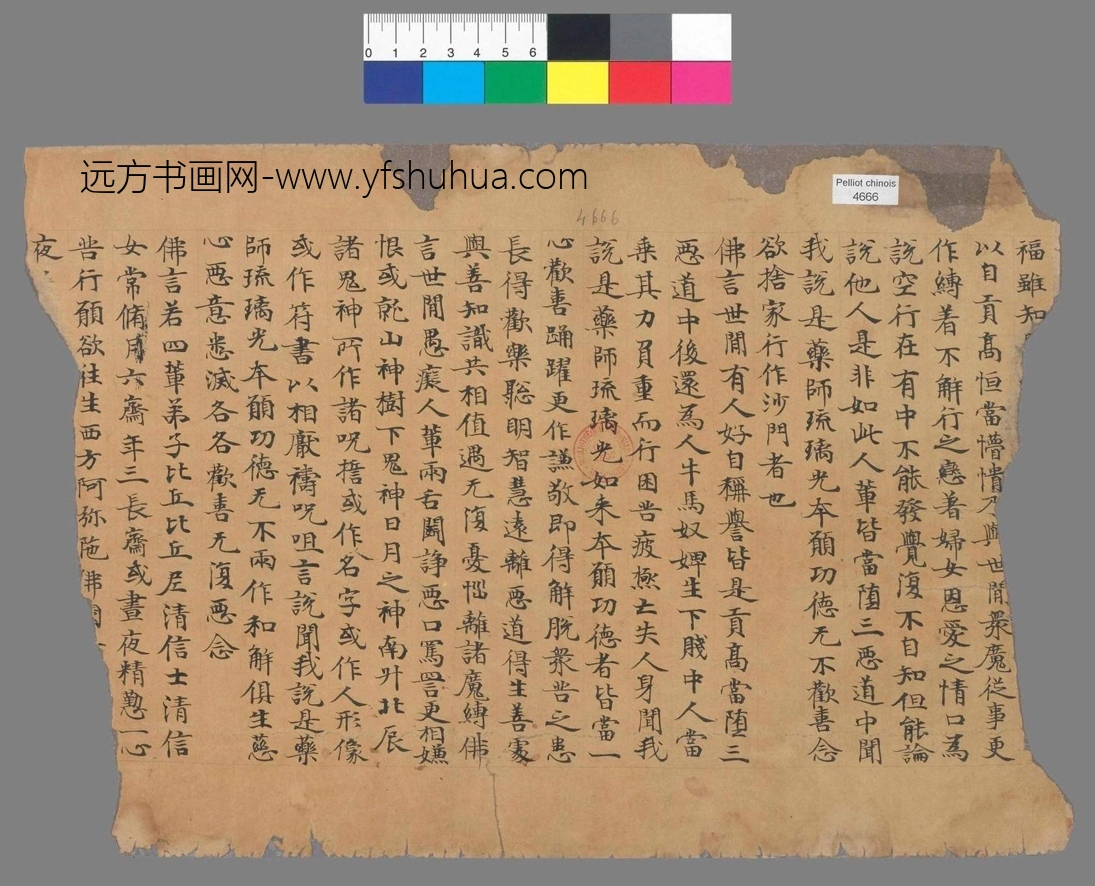 0 1 2 3 4 5 6
远方书画网-www.yfshuhua.com
Pelliot chinois
4666
4666
福雖知
以自貢高恒當懵憒乃與世間眾魔從事更
作縛着不解行之戀著婦女恩愛之情口為
說空行在有中不能發覺復不自知但能論
說他人是非如此人輩皆當墮三惡道中聞
我說是藥師琉璃光本願功德无不歡喜念
欲捨家行作沙門者也
佛言世間有人好自稱譽皆是貢高當墮三
惡道中後還為人牛馬奴婢生下賤中人當
乗其力負重而行困苦疲極亡失人身聞我
說是藥師琉璃光如来本願功德者皆當一
心歡喜踊躍更作謙敬即得解脫眾苦之患
長得歡樂聡明智慧遠離惡道得生善處
與善知識共相值遇无復憂惱離諸魔縛佛
言世間愚癡人輩兩舌鬪諍惡口罵詈更相嫌
恨或就山神樹下鬼神日月之神南斗北辰
諸鬼神所作諸呪擔或作人名字或作人形像
或作符書以相厭禱呪咀言說聞我說是藥
師琉璃光本願功德无不兩作和解俱生慈
心惡意悉滅各各歡喜无復惡念
佛言若四輩弟子比丘比丘尼清信士清信
女常脩月六齋年三長齋或晝夜精懃一心
苦行願欲往生西方阿弥陁佛國
夜